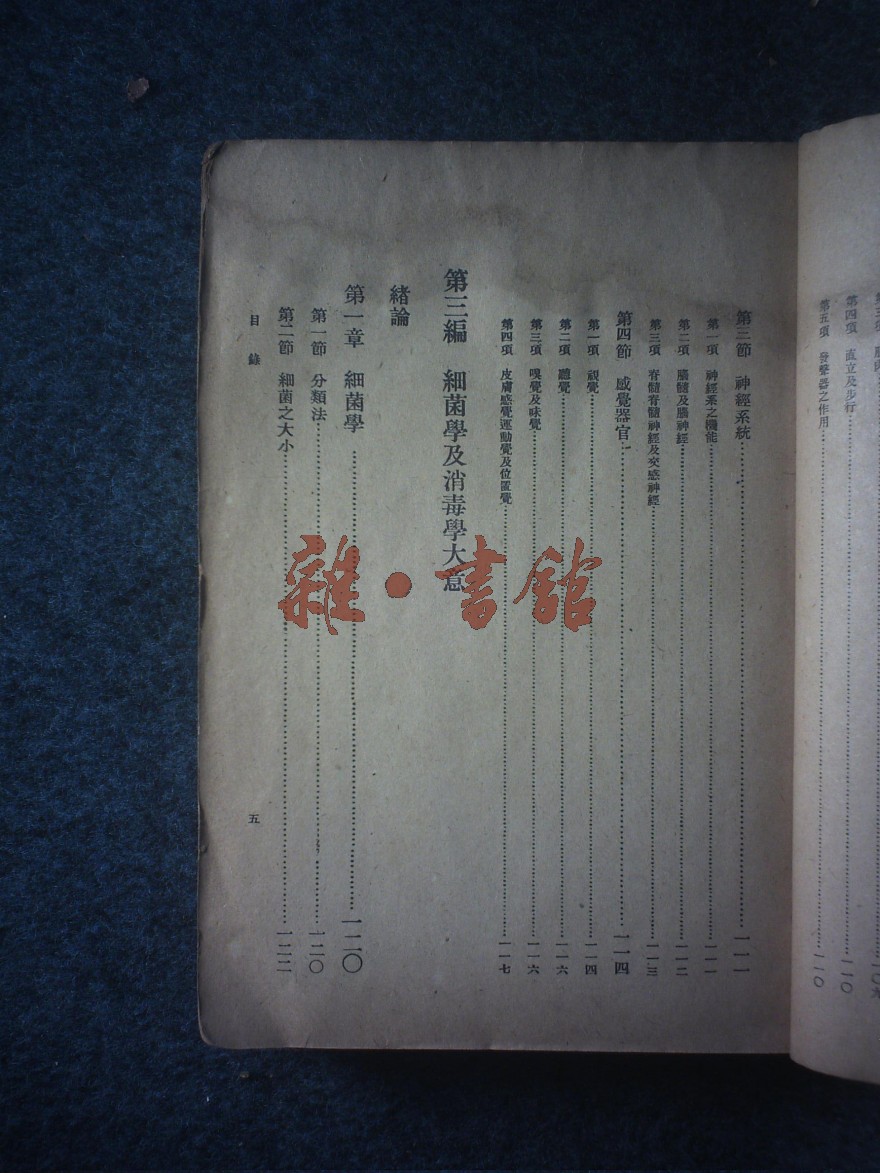 第四項　直立及步行……一一〇
第五項　發聲器之作用……一一〇
第三節　神經系統……一一一
第一項　神經系之機能……一一一
第二項　腦髓及腦神經……一一二
第三項　脊髓脊髓神經及交感神經……一一三
第四節　感覺器官……一一四
第一項　視覺……一一四
第二項　聽覺……一一六
第三項　嗅覺及味覺……一一六
第四項　皮膚感覺運動覺及位置覺……一一七
第三編　細菌學及消毒學大意
緒論
第一章　細菌學……一二〇
第一節　分類法……一二〇
第二節　細菌之大小……一二二
目錄
五
雜·書館